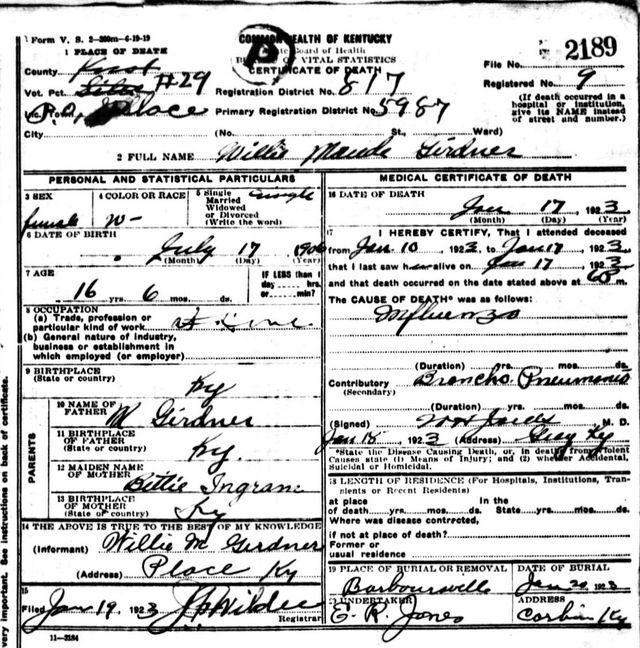 Form V. S. 2-300m-6-19-19
1 PLACE OF DEATH
COMMONWEALTH OF KENTUCKY
State Board of Health
BUREAU OF VITAL STATISTICS
CERTIFICATE OF DEATH
File No. 2189
Registered No. 9
(If death occurred in a hospital or institution, give its NAME instead of street and number.)
County Knox
Vot. Pct. #29
Registration District No. 817
Inc. Town P.O. Place
Primary Registration District No. 5987
City (No. St., Ward)
2 FULL NAME Willie Maude Girdner
PERSONAL AND STATISTICAL PARTICULARS
3 SEX female
4 COLOR OR RACE W-
5 Single Married Widowed or Divorced (Write the word) Single
6 DATE OF BIRTH
July 17 1906
(Month) (Day) (Year)
7 AGE
16 yrs. 6 mos. ds.
IF LESS than 1 day hrs. or min.?
8 OCCUPATION
(a) Trade, profession or particular kind of work
(b) General nature of industry, business or establishment in which employed (or employer)
9 BIRTHPLACE
(State or country)
Ky
PARENTS
10 NAME OF FATHER
M Girdner
11 BIRTHPLACE OF FATHER
(State or country) Ky.
12 MAIDEN NAME OF MOTHER
Bettie Ingram
13 BIRTHPLACE OF MOTHER
(State or country) Ky
14 THE ABOVE IS TRUE TO THE BEST OF MY KNOWLEDGE
(Informant) Willie M Girdner
(Address) Place Ky
15
Filed Jan 19 1923
Registrar
11-3184
MEDICAL CERTIFICATE OF DEATH
16 DATE OF DEATH
Jan 17, 1923
(Month) (Day) (Year)
17 I HEREBY CERTIFY, That I attended deceased
from Jan 10, 1923, to Jan 17, 1923,
that I last saw h alive on Jan 17, 1923
and that death occurred on the date stated above at m.
The CAUSE OF DEATH* was as follows:
Influenza
(Duration) yrs. mos. ds.
Contributory Broncho Pneumonia
(Secondary)
(Duration) yrs. mos. ds.
(Signed) M. D.
Jan 18, 1923 (Address) Gray Ky
*State the Disease Causing Death, or, in deaths from Violent Causes state (1) Means of Injury; and (2) whether Accidental, Suicidal or Homicidal.
18 LENGTH OF RESIDENCE (For Hospitals, Institutions, Transients or Recent Residents)
At place of death yrs. mos. ds. In the State yrs. mos. ds.
Where was disease contracted,
if not at place of death?
Former or usual residence
19 PLACE OF BURIAL OR REMOVAL
Barbourville
DATE OF BURIAL
Jan 20 1923
20 UNDERTAKER
E. R. Jones
ADDRESS
Corbin Ky
very important. See instructions on back of certificate.